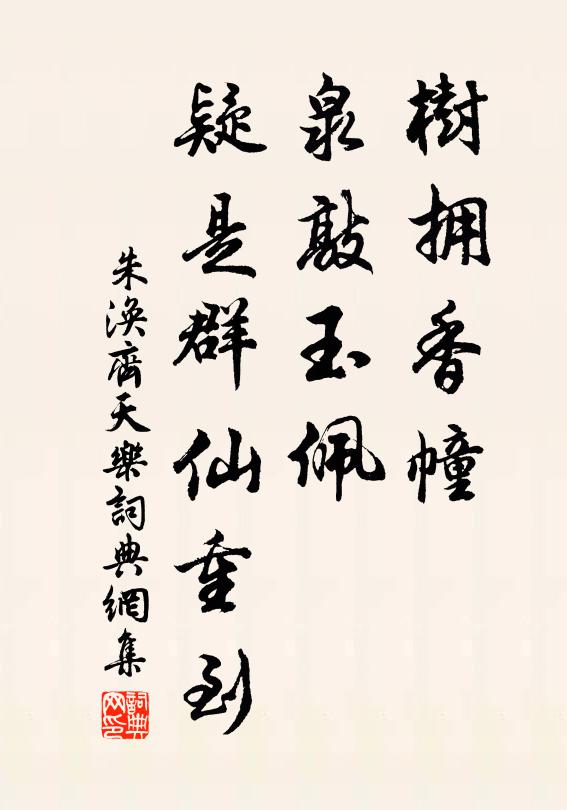 樹拥香幢
泉敲玉佩
疑是群仙重到
朱渙齊天樂詞典網集
詞典网印